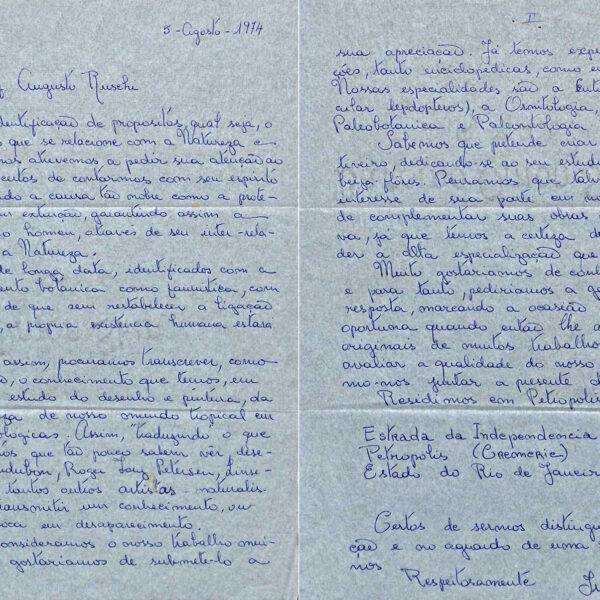 5 - Agosto - 1974
Augusto Ruschi
identificação de propositos, qual seja, o
que se relacione com a Natureza e
nos atrevemos a pedir sua atenção ao
certos de contarmos com seu espirito
a causa tão nobre como a prote-
em extinção, garantindo assim a
o homem, através de seu inter-rela-
a Natureza.
de longa data, identificados com a
botanica como faunistica, com
de que sem restabelecer a ligação
a propria existencia humana estará
assim, procuramos transcrever, como
o conhecimento que temos, em
estudo do desenho e pintura, da
de nosso mundo tropical em
Assim, "traduzindo o que
que tão pouco sabem ver, dese-
Roger Tory Petersen,
tantos outros artistas - naturalis-
transmitir um conhecimento, ou
em desaparecimento.
consideramos o nosso trabalho mui-
gostariamos de submete-lo a
II
sua apreciação. Já temos expe
ções, tanto enciclopédicas, como e
Nossas especialidades são a
cular lepdopteros), a
Paleobotanica e Paleontologia
Sabemos que pretende criar
dedicando-se ao seu estud
beija flôres. Pensamos que tal
interesse de sua parte em
de complementar suas obras
va, já que temos a certeza d
der a alta especialização que
Muito gostariamos de cont
e para tanto, pediriamos a g
resposta, marcando a ocasião
oportuna quando então lhe a
originais de muitos trabalho
avaliar a qualidade do nosso
mo-nos juntar a presente
Residimos em Petropolis
Estrada da Independencia
Petropolis (Cremerie)
Estado do Rio de Janeir
Certos de sermos distingu
ção e no aguardo de uma
mos
Respeitosamente